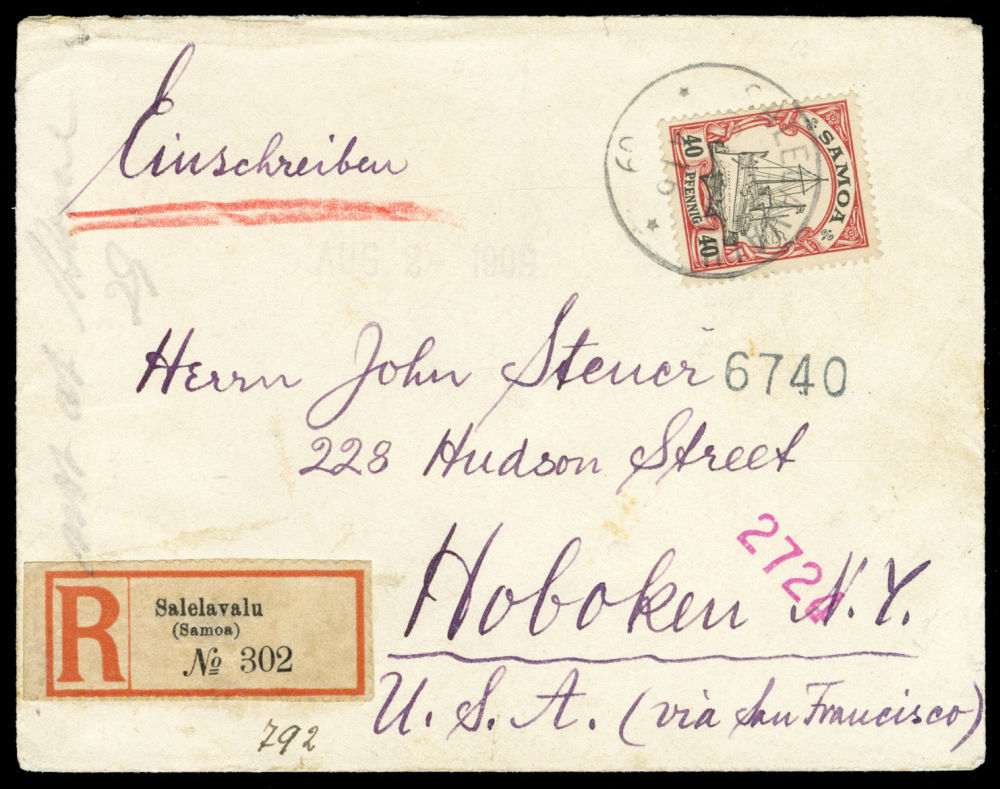 Einschreiben
SAMOA
40 PFENNIG 40
09
Herrn John Steuer
6740
228 Hudson Street
Hoboken N.Y.
U. S. A. (via San Francisco)
R
Salelavalu
(Samoa)
№ 302
792